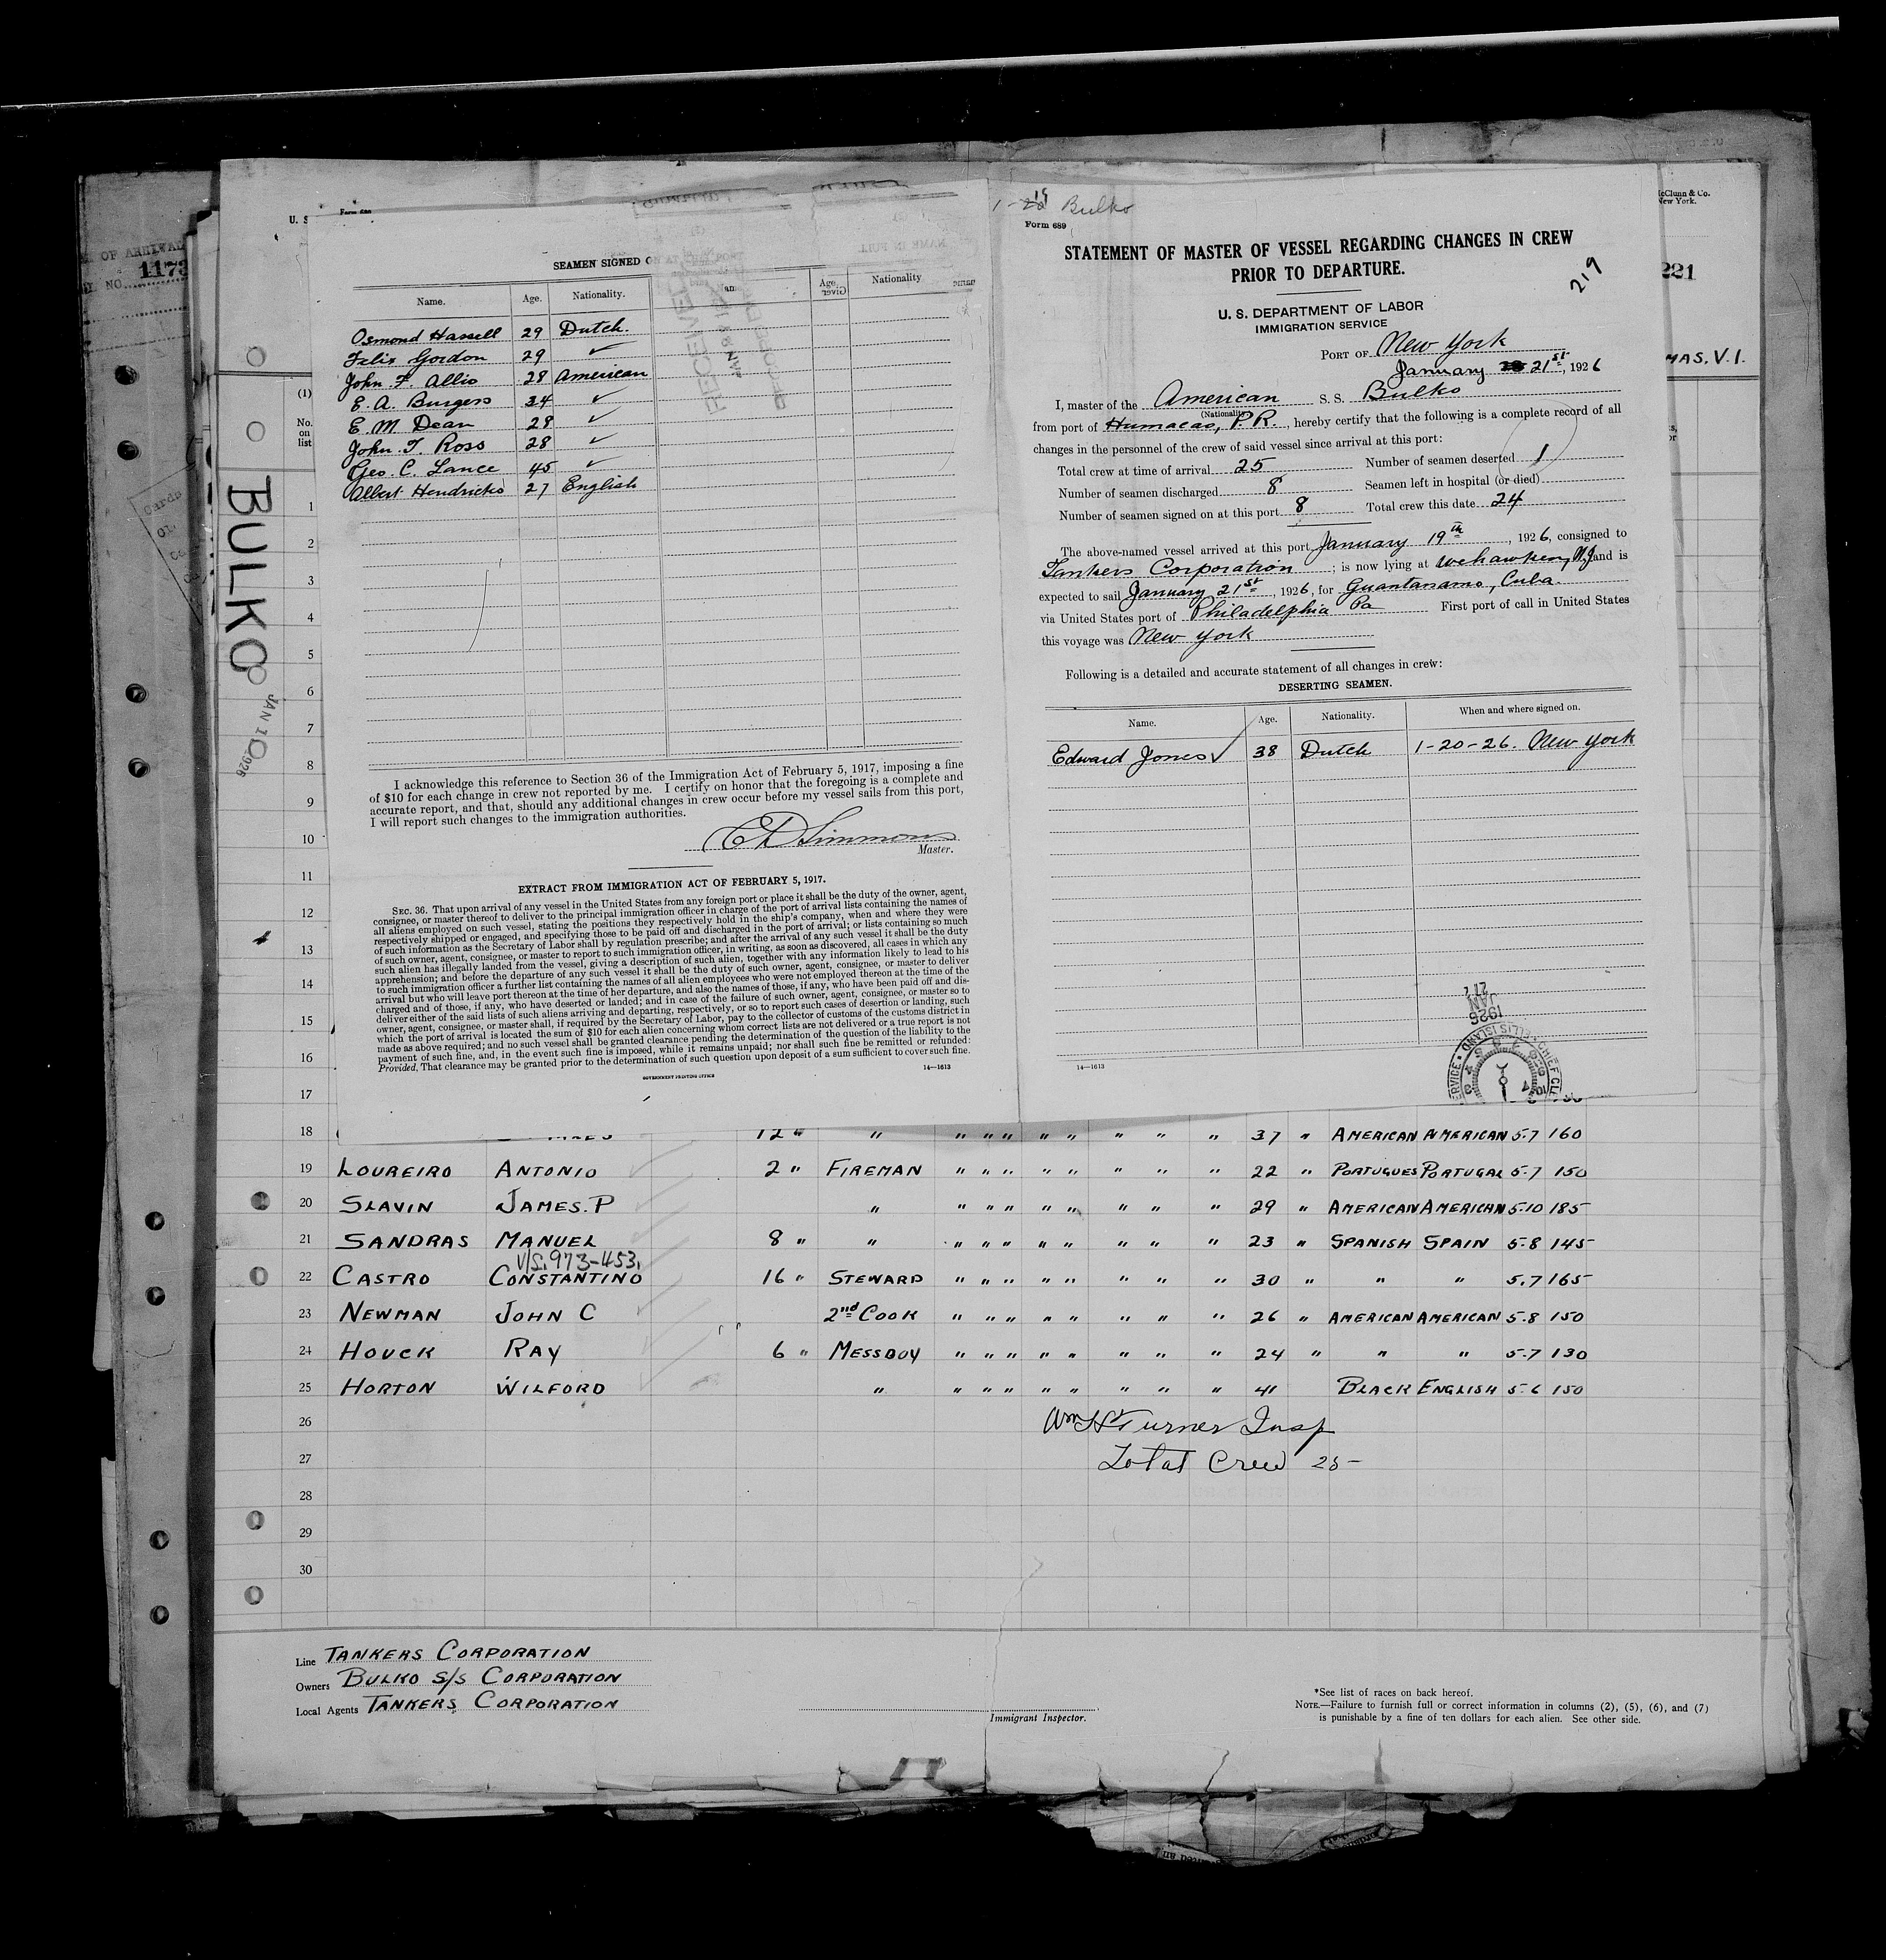 1173
U. S
Form 689
SEAMEN SIGNED O
Name. Age. Nationality. Age. Nationality
Osmond Hassell 29 Dutch.
Felix Gordon 29 ✓
John F. Allis 28 American
E. A. Burgess 34 ✓
E. M. Dean 29 ✓
John T. Ross 28 ✓
Geo. C. Lance 45 ✓
Albert Hendricks 27 English
I acknowledge this reference to Section 36 of the Immigration Act of February 5, 1917, imposing a fine
of $10 for each change in crew not reported by me. I certify on honor that the foregoing is a complete and
accurate report, and that, should any additional changes in crew occur before my vessel sails from this port,
I will report such changes to the immigration authorities.
Simmons
Master.
EXTRACT FROM IMMIGRATION ACT OF FEBRUARY 5, 1917.
SEC. 36. That upon arrival of any vessel in the United States from any foreign port or place it shall be the duty of the owner, agent,
consignee, or master thereof to deliver to the principal immigration officer in charge of the port of arrival lists containing the names of
all aliens employed on such vessel, stating the positions they respectively hold in the ship's company, when and where they were
respectively shipped or engaged, and specifying those to be paid off and discharged in the port of arrival; or lists containing so much
of such information as the Secretary of Labor shall by regulation prescribe; and after the arrival of any such vessel it shall be the duty
of such owner, agent, consignee, or master to report to such immigration officer, in writing, as soon as discovered, all cases in which any
such alien has illegally landed from the vessel, giving a description of such alien, together with any information likely to lead to his
apprehension; and before the departure of any such vessel it shall be the duty of such owner, agent, consignee, or master to deliver
to such immigration officer a further list containing the names of all alien employees who were not employed thereon at the time of the
arrival but who will leave port thereon at the time of her departure, and also the names of those, if any, who have been paid off and dis-
charged and of those, if any, who have deserted or landed; and in case of the failure of such owner, agent, consignee, or master so to
deliver either of the said lists of such aliens arriving and departing, respectively, or so to report such cases of desertion or landing, such
owner, agent, consignee, or master shall, if required by the Secretary of Labor, pay to the collector of customs of the customs district in
which the port of arrival is located the sum of $10 for each alien concerning whom correct lists are not delivered or a true report is not
made as above required; and no such vessel shall be granted clearance pending the determination of the question of the liability to the
payment of such fine, and, in the event such fine is imposed, while it remains unpaid; nor shall such fine be remitted or refunded:
Provided, That clearance may be granted prior to the determination of such question upon deposit of a sum sufficient to cover such fine.
GOVERNMENT PRINTING OFFICE
14—1613
1-19 Bulko
Form 689
STATEMENT OF MASTER OF VESSEL REGARDING CHANGES IN CREW
PRIOR TO DEPARTURE.
219
U. S. DEPARTMENT OF LABOR
IMMIGRATION SERVICE
PORT OF New York
January 21st, 1926
I, master of the American S. S. Bulko
(Nationality)
from port of Humacao, P.R., hereby certify that the following is a complete record of all
changes in the personnel of the crew of said vessel since arrival at this port:
Total crew at time of arrival 25 Number of seamen deserted 1
Number of seamen discharged 8 Seamen left in hospital (or died)
Number of seamen signed on at this port 8 Total crew this date 24
The above-named vessel arrived at this port January 19th, 1926, consigned to
Tankers Corporation; is now lying at Wehawken, N.J. and is
expected to sail January 21st, 1926, for Guantanamo, Cuba.
via United States port of Philadelphia Pa First port of call in United States
this voyage was New York
Following is a detailed and accurate statement of all changes in crew:
DESERTING SEAMEN.
Name. Age. Nationality. When and where signed on.
Edward Jones ✓ 38 Dutch 1-20-26. New York
14—1613
1926
JAN
21
McClunn & Co.
New York.
221
MAS. V. I.
BULKO
JAN 1 1926
(1)
No.
on
list
1
2
3
4
5
6
7
8
9
10
11
12
13
14
15
16
17
18 12 " " " " " " " " " " 37 " AMERICAN AMERICAN 5.7 160
19 LOUREIRO ANTONIO 2 " FIREMAN " " " " " " " " 22 " PORTUGUES PORTUGAL 5.7 150
20 SLAVIN JAMES. P " " " " " " " " " 29 " AMERICAN AMERICAN 5.10 185
21 SANDRAS MANUEL 8 " " " " " " " " " " 23 " SPANISH SPAIN 5.8 145
V/S. 973-453.
22 CASTRO CONSTANTINO 16 " STEWARD " " " " " " " " 30 " " " 5.7 165
23 NEWMAN JOHN C 2nd COOK " " " " " " " " 26 " AMERICAN AMERICAN 5.8 150
24 HOUCK RAY 6 " MESSBOY " " " " " " " " 24 " " " 5.7 130
25 HORTON WILFORD " " " " " " " " " 41 BLACK ENGLISH 5.6 150
26 Wm H Turner Insp
27 Total Crew 25
28
29
30
Line TANKERS CORPORATION
Owners BULKO S/S CORPORATION
Local Agents TANKERS CORPORATION
Immigrant Inspector.
*See list of races on back hereof.
NOTE.—Failure to furnish full or correct information in columns (2), (5), (6), and (7)
is punishable by a fine of ten dollars for each alien. See other side.